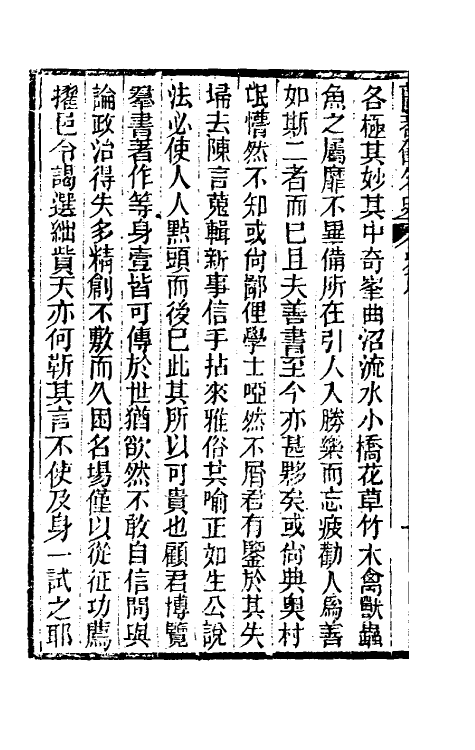 各極其妙其中奇峯曲沼流水小橋花草竹木禽獸蟲
魚之屬靡不畢備所在引人入勝樂而忘疲勸人爲善
如斯二者而已且夫善書至今亦甚夥矣或尙典奧村
氓懵然不知或尙鄙俚學士啞然不屑君有鑒於其失
埽去陳言蒐輯新事信手拈來雅俗共喻正如生公說
法必使人人點頭而後已此其所以可貴也顧君博覽
羣書著作等身壹皆可傳於世猶欿然不敢自信間與
論政治得失多精創不敷而久困名場僅以從征功薦
擢邑令謁選絀貲天亦何靳其言不使及身一試之耶